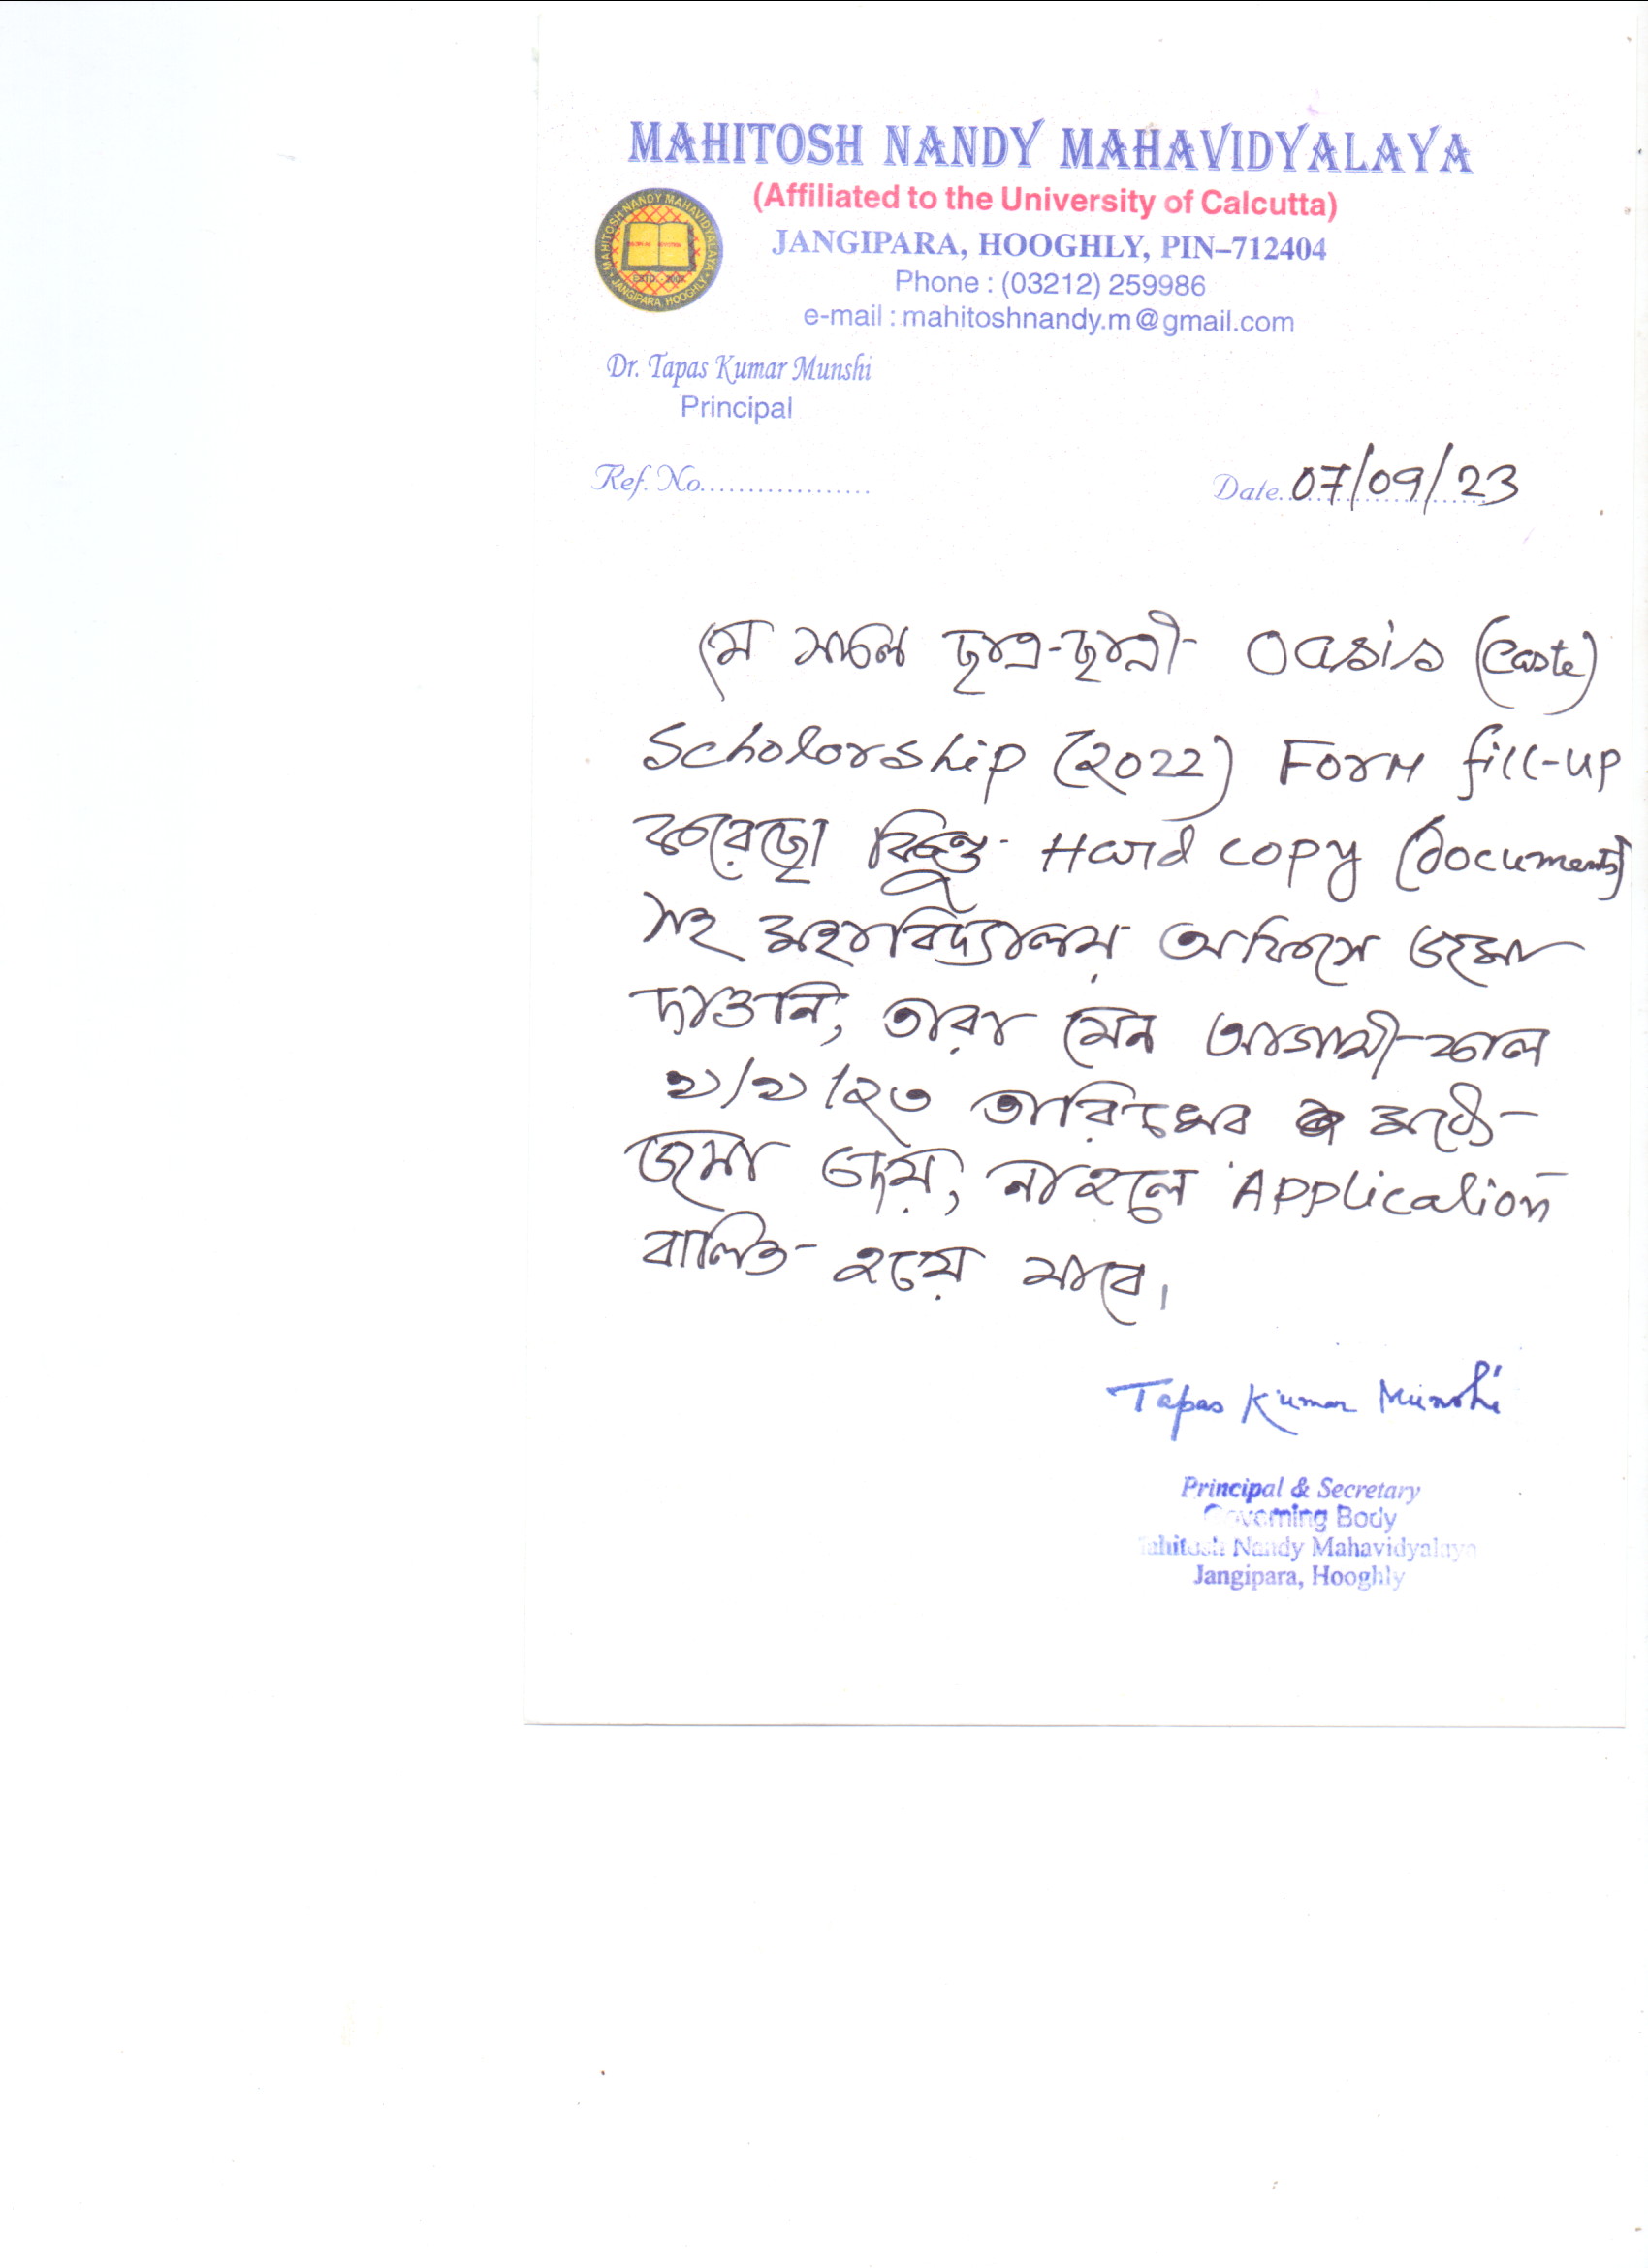 MAHITOSH NANDY MAHAVIDYALAYA
(Affiliated to the University of Calcutta)
JANGIPARA, HOOGHLY, PIN–712404
Phone : (03212) 259986
e-mail : mahitoshnandy.m@gmail.com
MAHITOSH NANDY MAHAVIDYALAYA
JANGIPARA, HOOGHLY
Dr. Tapas Kumar Munshi
Principal
Ref. No..................
Date. 07/09/23
যে সকল ছাত্র-ছাত্রী Oasis (Caste)
Scholorship (২022) Form fill-up
করেছো কিন্তু Hard copy (documents)
সহ মহাবিদ্যালয় অফিসে জমা
দাওনি, তারা যেন আগামীকাল
/২৩ তারিখের মধ্যে
জমা দেয়, নাহলে Application
বাতিল হয়ে যাবে।
Tapas Kumar Munshi
Principal & Secretary
Governing Body
Mahitosh Nandy Mahavidyalaya
Jangipara, Hooghly